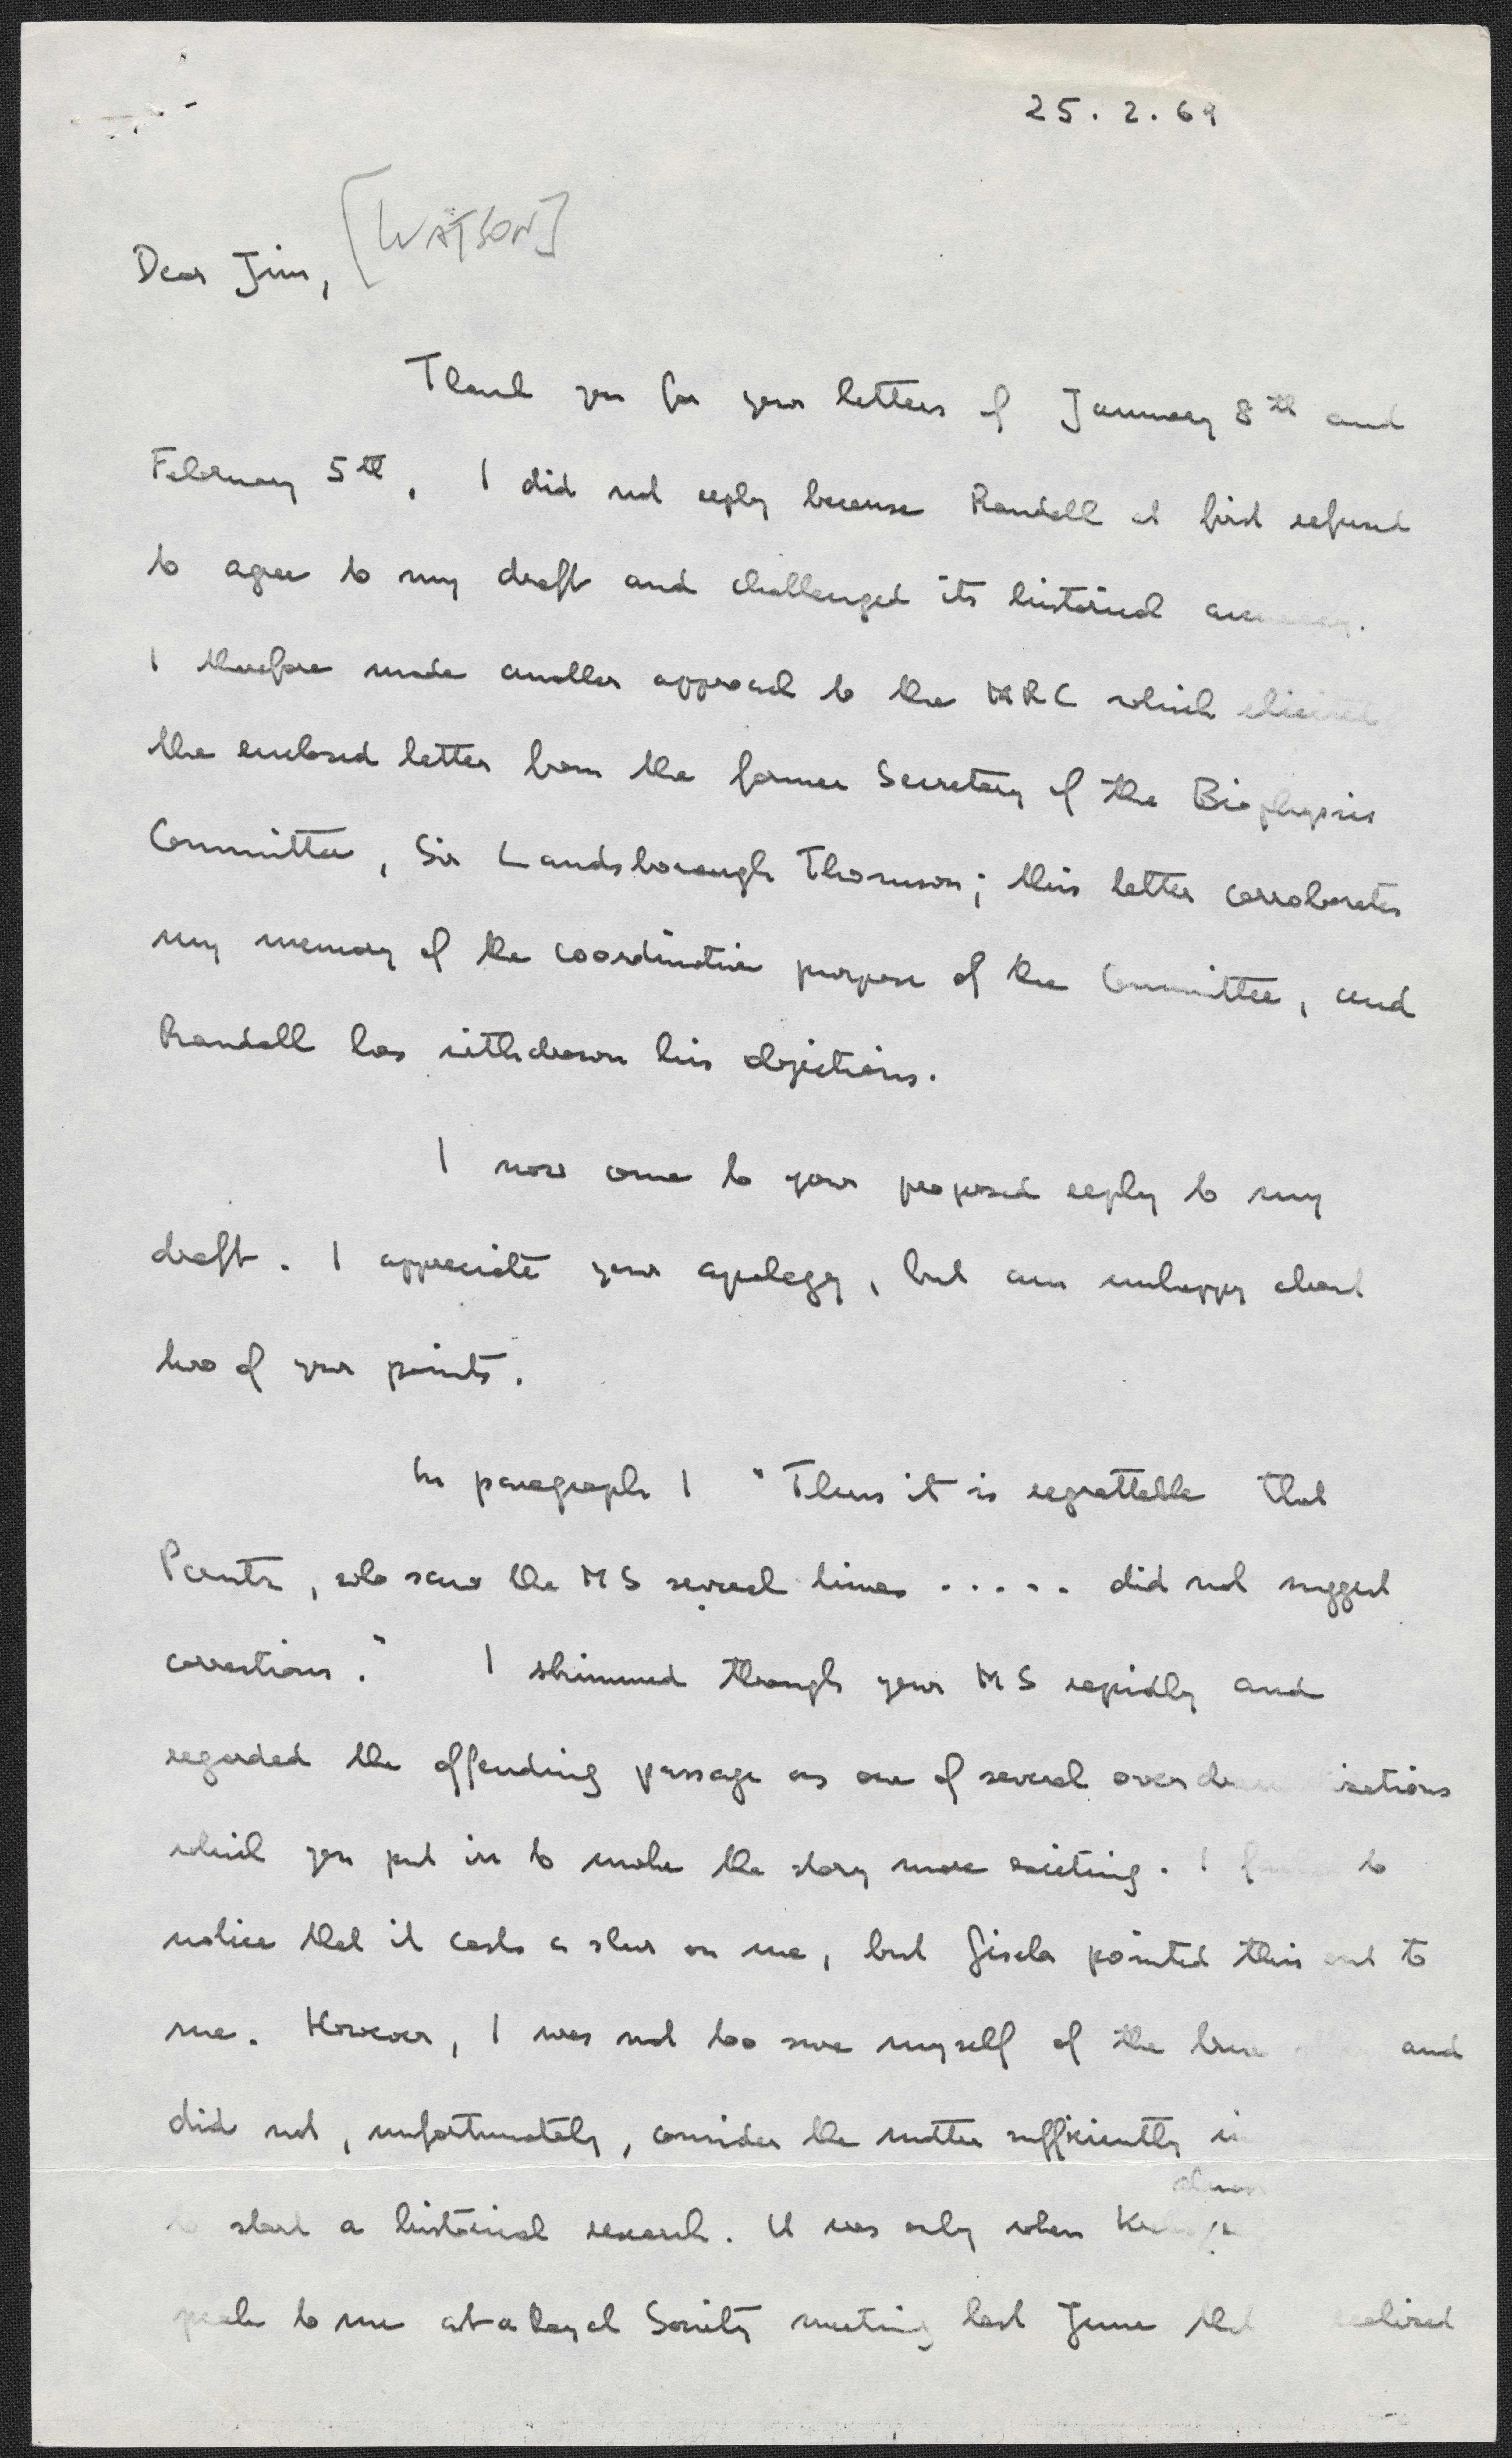 25.2.69
[WATSON]
Dear Jim,
Thank you for your letters of January 8th and
February 5th. I did not reply because Randall at first refused
to agree to my draft and challenged its historical
I therefore made another approach to the MRC which elicited
the enclosed letter from the former Secretary of the Biophysics
Committee, Sir Landsborough Thomson; this letter corroborates
my memory of the coordinative purpose of the Committee, and
Randall has withdrawn his objections.
I now come to your proposed reply to my
draft. I appreciate your apology, but am unhappy about
two of your points.
In paragraph 1 "Thus it is regrettable that
Perutz, who saw the MS several times ..... did not suggest
corrections." I skimmed through your MS rapidly and
regarded the offending passage as one of several
which you put in to make the story more exciting. I to
notice that it casts a slur on me, but Gisela pointed this out to
me. However, I was not too sure myself of the and
did not, unfortunately, consider the matter sufficiently
start a historical research. It was only when
to me at a Royal Society meeting last June that realised